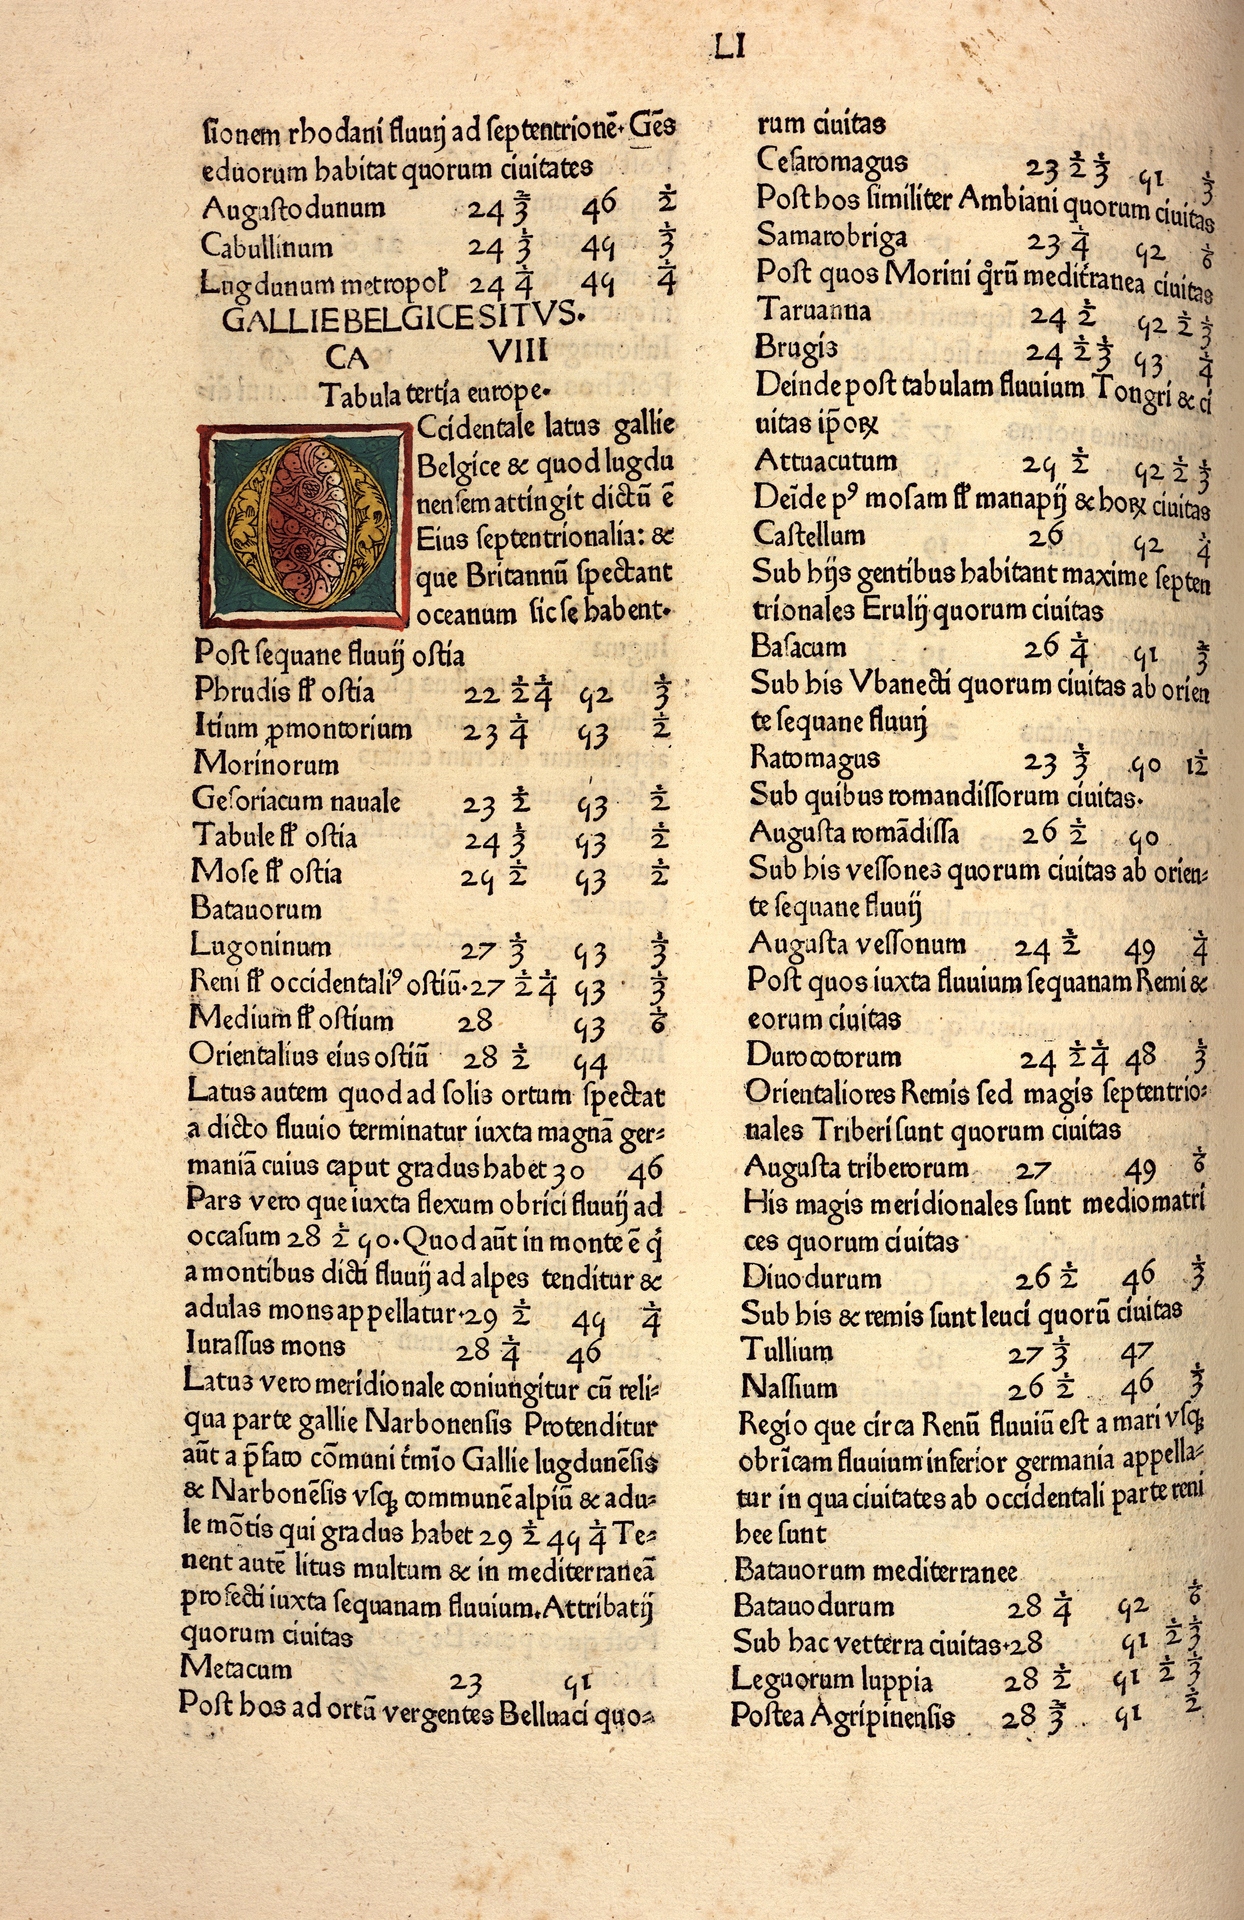 LI
ſionem rhodani fluuij ad ſeptentrionē. Gēs
eduorum habitat quorum ciuitates
Auguſtodunum 24 ⅔ 46 ½
Cabullinum 24 ⅓ 45 ⅓
Lugdunum metropoł 24 ¼ 45 ¼
GALLIE BELGICE SITVS.
CA VIII
Tabula tertia europe.
OCcidentale latus gallie
Belgice & quod lugdu
nenſem attingit dictū ē
Eius ſeptentrionalia: &
que Britannū ſpectant
oceanum ſic ſe habent.
Poſt ſequane fluuij oſtia
Phrudis fł oſtia 22 ½ ¼ 52 ⅓
Itium ꝓmontorium 23 ¼ 53 ½
Morinorum
Geſoriacum nauale 23 ½ 53 ½
Tabule fł oſtia 24 ⅓ 53 ½
Moſe fł oſtia 25 ½ 53 ½
Batauorum
Lugoninum 27 ⅓ 53 ⅓
Reni fł occidentaliꝰ oſtiū. 27 ½ ¼ 53 ⅓
Medium fł oſtium 28 53 ⅙
Orientalius eius oſtiū 28 ½ 54
Latus autem quod ad ſolis ortum ſpectat
a dicto fluuio terminatur iuxta magnā ger⸗
maniā cuius caput gradus habet 30 46
Pars vero que iuxta flexum obrici fluuij ad
occaſum 28 ½ 50. Quod aūt in monte ē q̇
a montibus dicti fluuij ad alpes tenditur &
adulas mons appellatur. 29 ½ 45 ¼
Iuraſſus mons 28 ¼ 46
Latus vero meridionale coniungitur cū reli⸗
qua parte gallie Narbonenſis Protenditur
aūt a p̄fato cōmuni ťmīo Gallie lugdunēſis
& Narbonēſis vſqꝫ communē alpiū & adu⸗
le mōtis qui gradus habet 29 ½ 45 ¼ Te⸗
nent autē litus multum & in mediterraneā
profecti iuxta ſequanam fluuium. Attribatij
quorum ciuitas
Metacum 23 51
Poſt hos ad ortū vergentes Belluaci quo⸗
rum ciuitas
Ceſaromagus 23 ½ ⅓ 51 ⅓
Poſt hos ſimiliter Ambiani quorum ciuitas
Samarobriga 23 ¼ 52 ⅙
Poſt quos Morini qͦrū mediťranea ciuitas
Taruanna 24 ½ 52 ½ ⅓
Brugis 24 ½ ⅓ 53 ¼
Deinde poſt tabulam fluuium Tongri & ci
uitas ip̄oꝝ
Attuacutum 25 ½ 52 ½ ⅓
Deīde pꝰ moſam fł manapij & hoꝝ ciuitas
Caſtellum 26 52 ¼
Sub hijs gentibus habitant maxime ſepten
trionales Erulij quorum ciuitas
Baſacum 26 ¼ 51 ⅔
Sub his Vbanecti quorum ciuitas ab orien
te ſequane fluuij
Ratomagus 23 ⅓ 50 1/12
Sub quibus romandiſſorum ciuitas.
Auguſta romādiſſa 26 ½ 50
Sub his veſſones quorum ciuitas ab orien⸗
te ſequane fluuij
Auguſta veſſonum 24 ½ 49 ¼
Poſt quos iuxta fluuium ſequanam Remi &
eorum ciuitas
Durocotorum 24 ½ ¼ 48 ⅓
Orientaliores Remis ſed magis ſeptentrio⸗
nales Triberi ſunt quorum ciuitas
Auguſta triberorum 27 49 ⅙
His magis meridionales ſunt mediomatri
ces quorum ciuitas
Diuodurum 26 ½ 46 ⅓
Sub his & remis ſunt leuci quorū ciuitas
Tullium 27 ⅓ 47
Naſſium 26 ½ 46 ⅔
Regio que circa Renū fluuiū eſt a mari vſqꝫ
obrīcam fluuium inferior germania appella⸗
tur in qua ciuitates ab occidentali parte reni
hee ſunt
Batauorum mediterranee
Batauodurum 28 ¼ 52 ⅙
Sub hac vetterra ciuitas. 28 51 ½ ⅓
Leguorum luppia 28 ½ 51 ½ ⅓
Poſtea Agripinenſis 28 ⅔ 51 ½